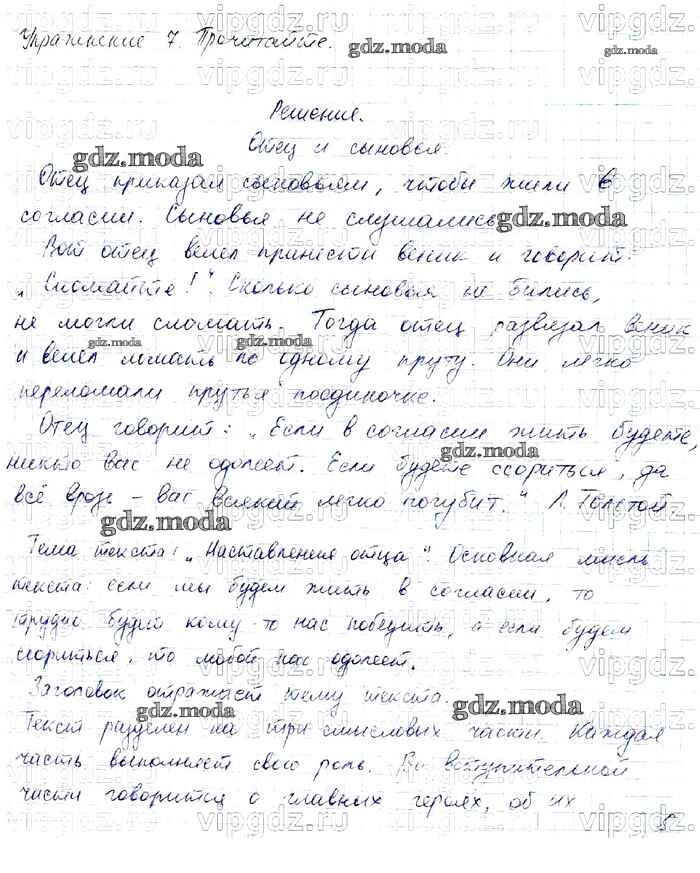 Упражнение 7. Прочитайте.
Решение.
Отец и сыновья.
Отец приказал сыновьям, чтобы жили в
согласии. Сыновья не слушались.
Вот отец велел принести веник и говорит:
„Сломайте!“. Сколько сыновья не бились,
не могли сломать. Тогда отец развязал веник
и велел ломать по одному пруту. Они легко
переломали прутья поодиночке.
Отец говорит: „Если в согласии жить будете,
никто вас не одолеет. Если будете ссориться, да
всё врозь – вас всякий легко погубит.“ Л. Толстой.
Тема текста: „Наставления отца“. Основная мысль
текста: если мы будем жить в согласии, то
трудно будет кому то нас победить, а если будем
ссориться, то любой нас одолеет.
Заголовок отражает тему текста.
Текст разделен на три смысловых части. Каждая
часть выполняет свою роль. Во вступительной
части говорится о главных героях, об их
5
gdz.moda
vipgdz.ru